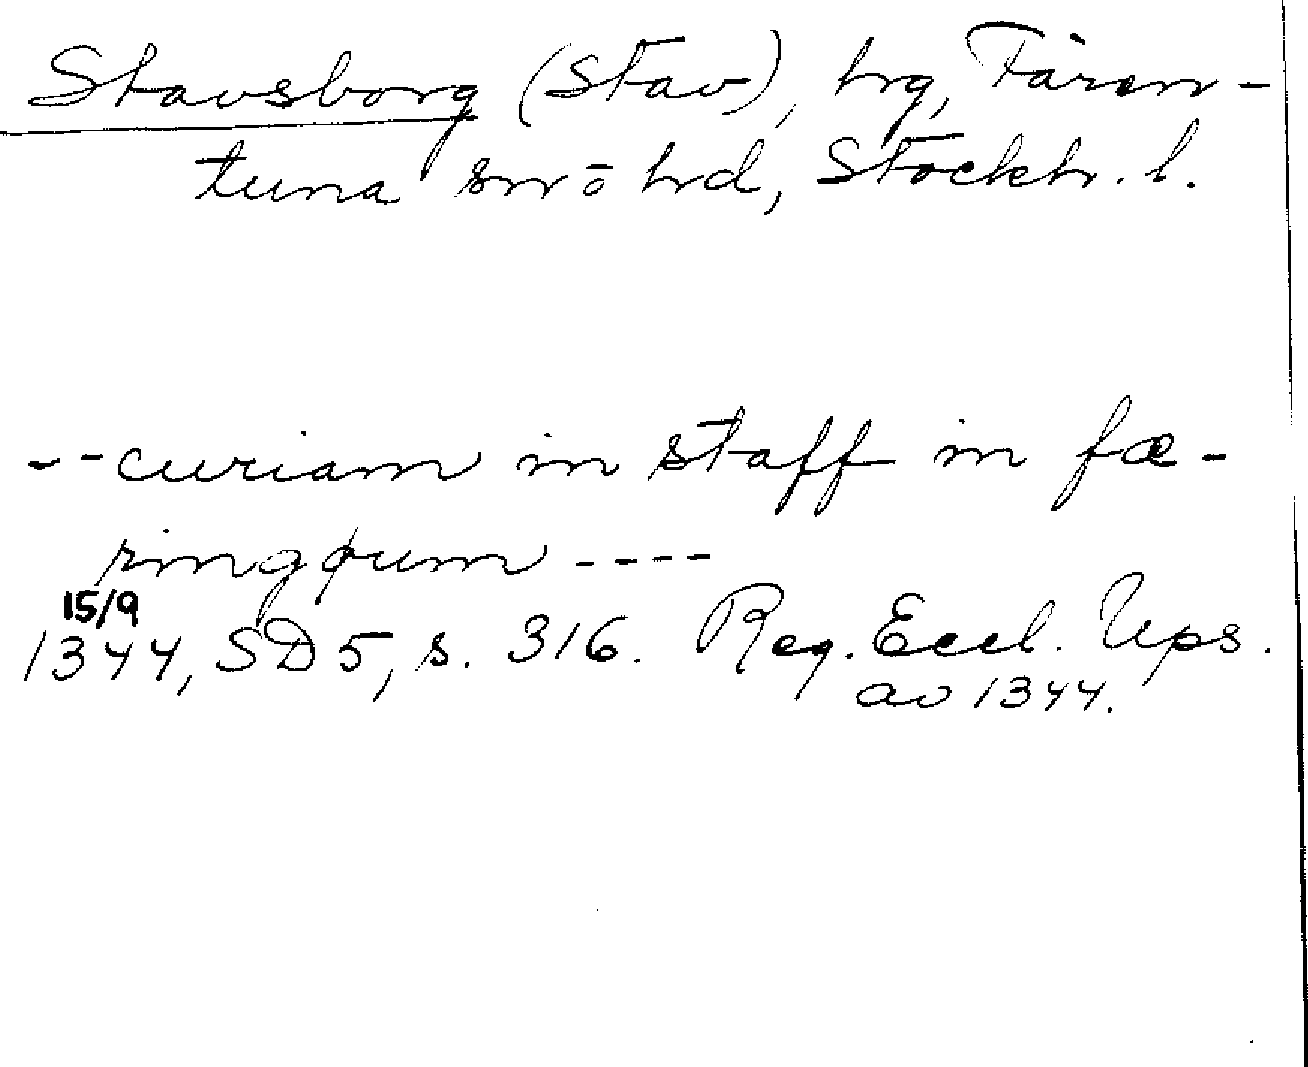 Stavsborg (Stav), hg, Fären-
tuna sn o hd, Stockh. l.
--curiam in staff in fæ-
ringøum ----
15/9
1344, SD 5, s. 316. Reg. Eccl. Ups.
av 1344.